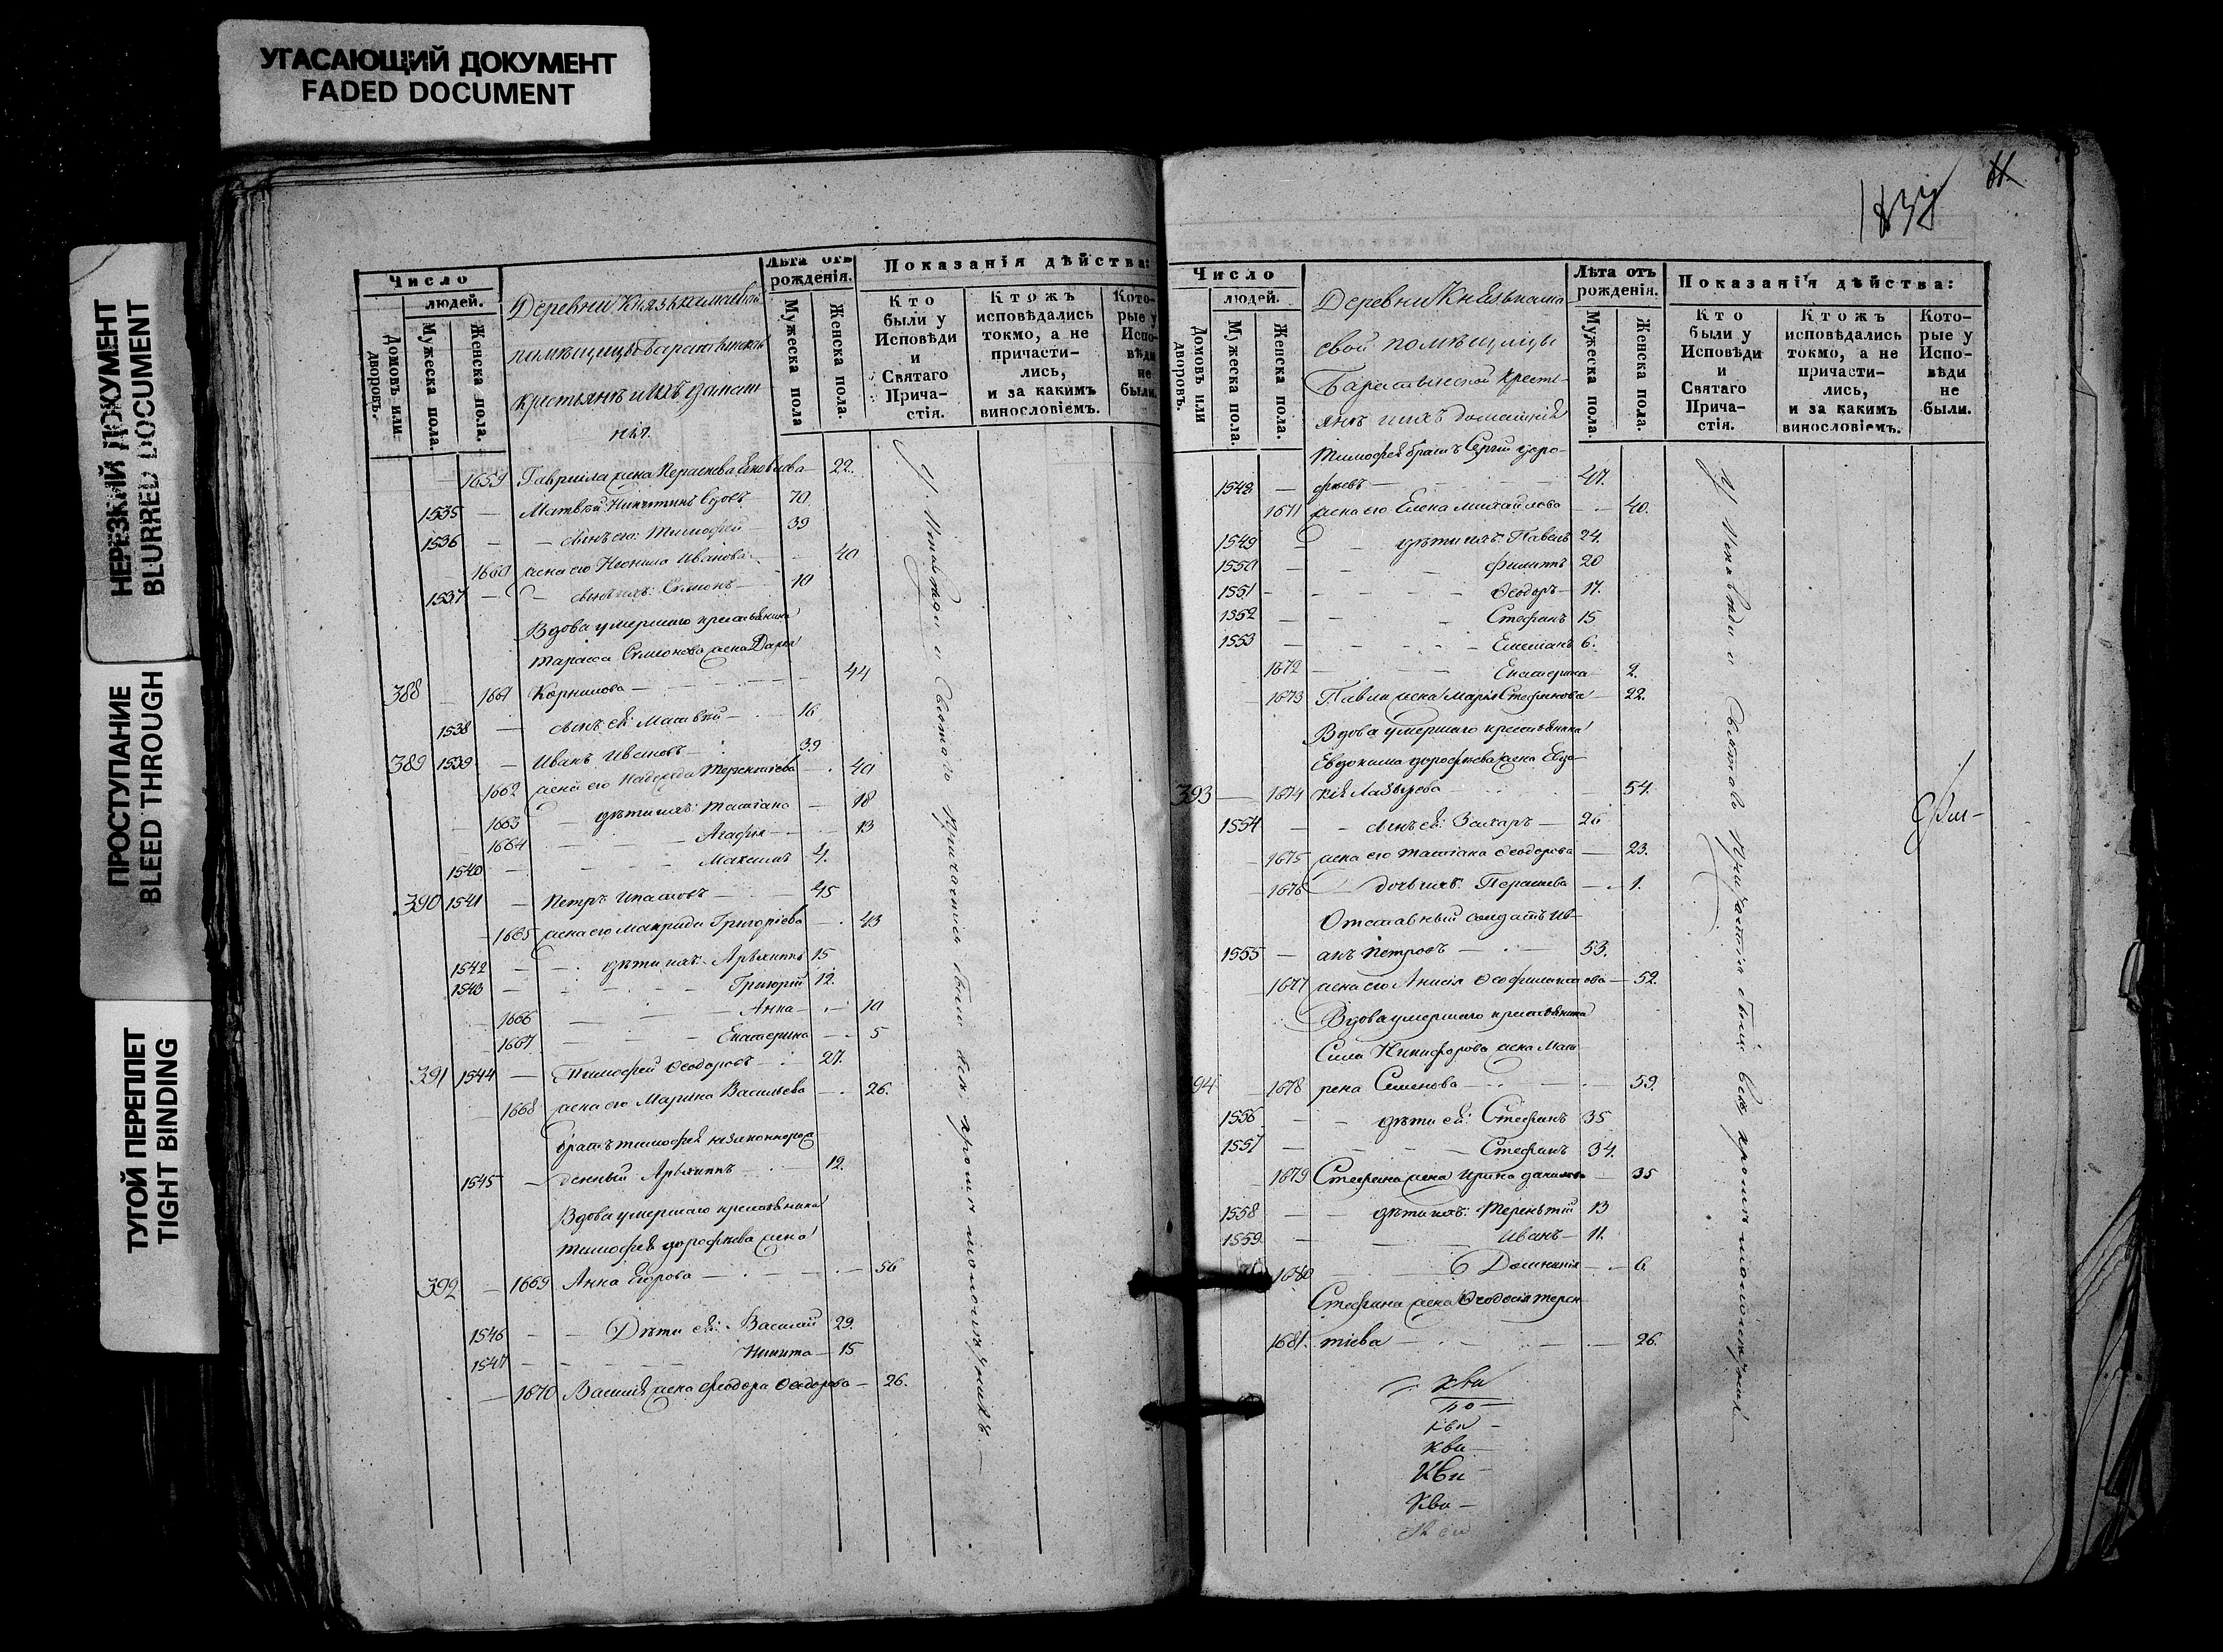 УГАСАЮЩИЙ ДОКУМЕНТ
FADED DOCUMENT
НЕРЕЗКИЙ ДОКУМЕНТ
BLURRED DOCUMENT
ПРОСТУПАНИЕ
BLEED THROUGH
ТУГОЙ ПЕРЕПЛЕТ
TIGHT BINDING
Число
людей.
Домовъ или дворовъ.
Мужеска пола.
Женска пола.
Деревни
помѣщицы
крестьянъ и ихъ
нія.
Лѣта отъ рожденія.
Мужеска пола
Женска пола.
Показанія дѣйства:
Кто были у Исповѣди и Святаго Причастія.
Ктожъ исповѣдались токмо, а не причастились, и за какимъ винословіемъ.
Которые у Исповѣди не были.
1659 Гавриила жена 22.
1535 — Матвѣй Никитинъ вдовъ — 70
1536 — — сынъ его: Тимофей — 39
1660 жена его Неонила Иванова — 40
1537 — — сынъ ихъ: Симонъ — 10
Вдова умершаго крестьянина
Тараса Симонова жена Дарья
388 — 1661 Корнилова — 44
1538 — сынъ ей: Матвѣй — 16
389 1539 — Иванъ — 39
1662 жена его Надежда Терентіева — 40
1663 — дѣти ихъ: Татіана — 18
1664 — Агафья — 13
1540 — Максимъ 4.
390 1541 — Петръ Ипатовъ — 45
1665 жена его Макрида Григоріева — 43
1542 — дѣти ихъ: Архиппъ 15
1543 — Григорій 12.
1666 — Анна — 10
1667 — Екатерина — 5
391 1544 — Тимофей Феодоровъ — 27.
1668 жена его Марина Васильева — 26.
братъ Тимофея незаконнорож
1545 — денный Архиппъ — 12.
Вдова умершаго крестьянина
Тимофея Дорофѣева жена
392 — 1669 Анна Егорова — 56
1546 — — Дѣти ей: Василій 29.
1547 — Никита — 15
— 1670 Василія жена Феодора Феодорова — 26.
У Исповѣди и Святаго Причастія были всѣ кромѣ
1837
Число
людей.
Домовъ или дворовъ.
Мужеска пола.
Женска пола.
Деревни
свой помѣщицы
кресть-
янъ и ихъ домашнія
Лѣта отъ рожденія.
Мужеска пола.
Женска пола.
Показанія дѣйства:
Кто были у Исповѣди и Святаго Причастія.
Ктожъ исповѣдались токмо, а не причастились, и за какимъ винословіемъ.
Которые у Исповѣди не были.
Тимофея братъ Сергій Доро-
1548 — фѣевъ — 47.
1671 жена его Елена Михайлова — 40.
1549 — — дѣти ихъ: Павелъ 24.
1550 — Филиппъ 20
1551 — Феодоръ — 17.
1352 — Стефанъ 15
1553 — Емелианъ 6.
1672 — Екатерина 2.
1673 Павла жена Марія Стефанова — 22.
Вдова умершаго крестьянина
Евдокима Дорофѣева жена Евдо-
393 — 1674 кія Лазарева — 54.
1554 — — сынъ ей: Захаръ — 26
1675 жена его Татіана Феодорова — 23.
1676 — дочь ихъ: — 1.
Отставный солдатъ Ив-
1555 — анъ Петровъ — 53.
1677 жена его Анисія — 52.
Вдова умершаго крестьянина
Сила Никифорова жена Мат-
94 — 1678 рена Семенова — 59.
1556 — — дѣти ей: Стефанъ 35
1557 — Стефанъ 34.
1679 Стефана жена Ирина — 35
1558 — — дѣти ихъ: Терентій 13
1559. — Иванъ — 11.
1680 — Домникія — 6.
Стефана жена Феодосія Терен-
1681. тіева — 26.
У Исповѣди и Святаго Причастія были всѣ кромѣ